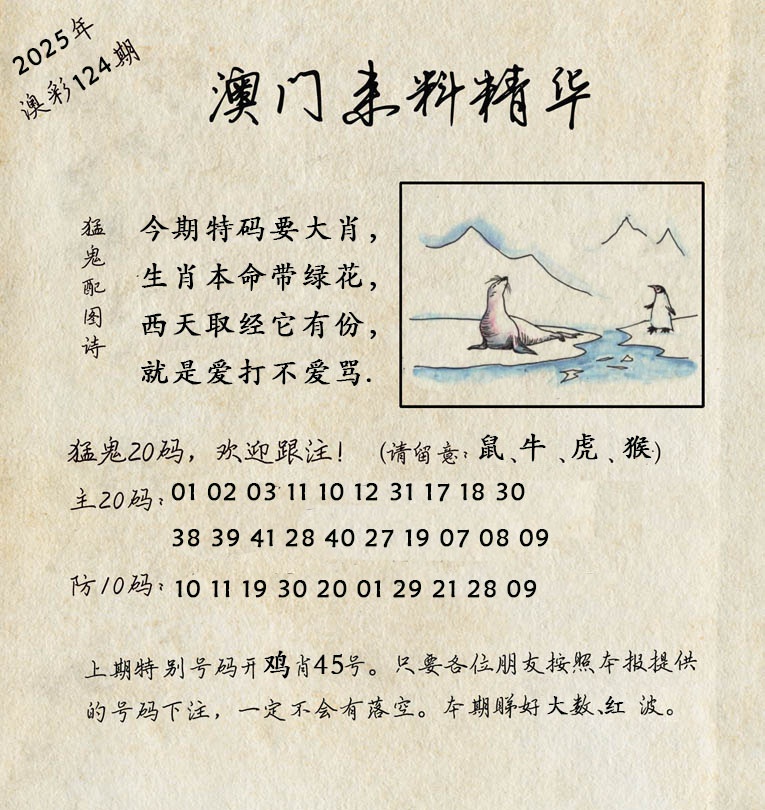 2025年
澳彩124期
澳门来料精华
猛鬼配图诗
今期特码要大肖，
生肖本命带绿花，
西天取经它有份，
就是爱打不爱骂.
猛鬼20码，欢迎跟注！（请留意：鼠、牛、虎、猴）
主20码：01 02 03 11 10 12 31 17 18 30
38 39 41 28 40 27 19 07 08 09
防10码：10 11 19 30 20 01 29 21 28 09
上期特别号码开鸡肖45号。只要各位朋友按照本报提供
的号码下注，一定不会有落空。本期睇好大数、红波。